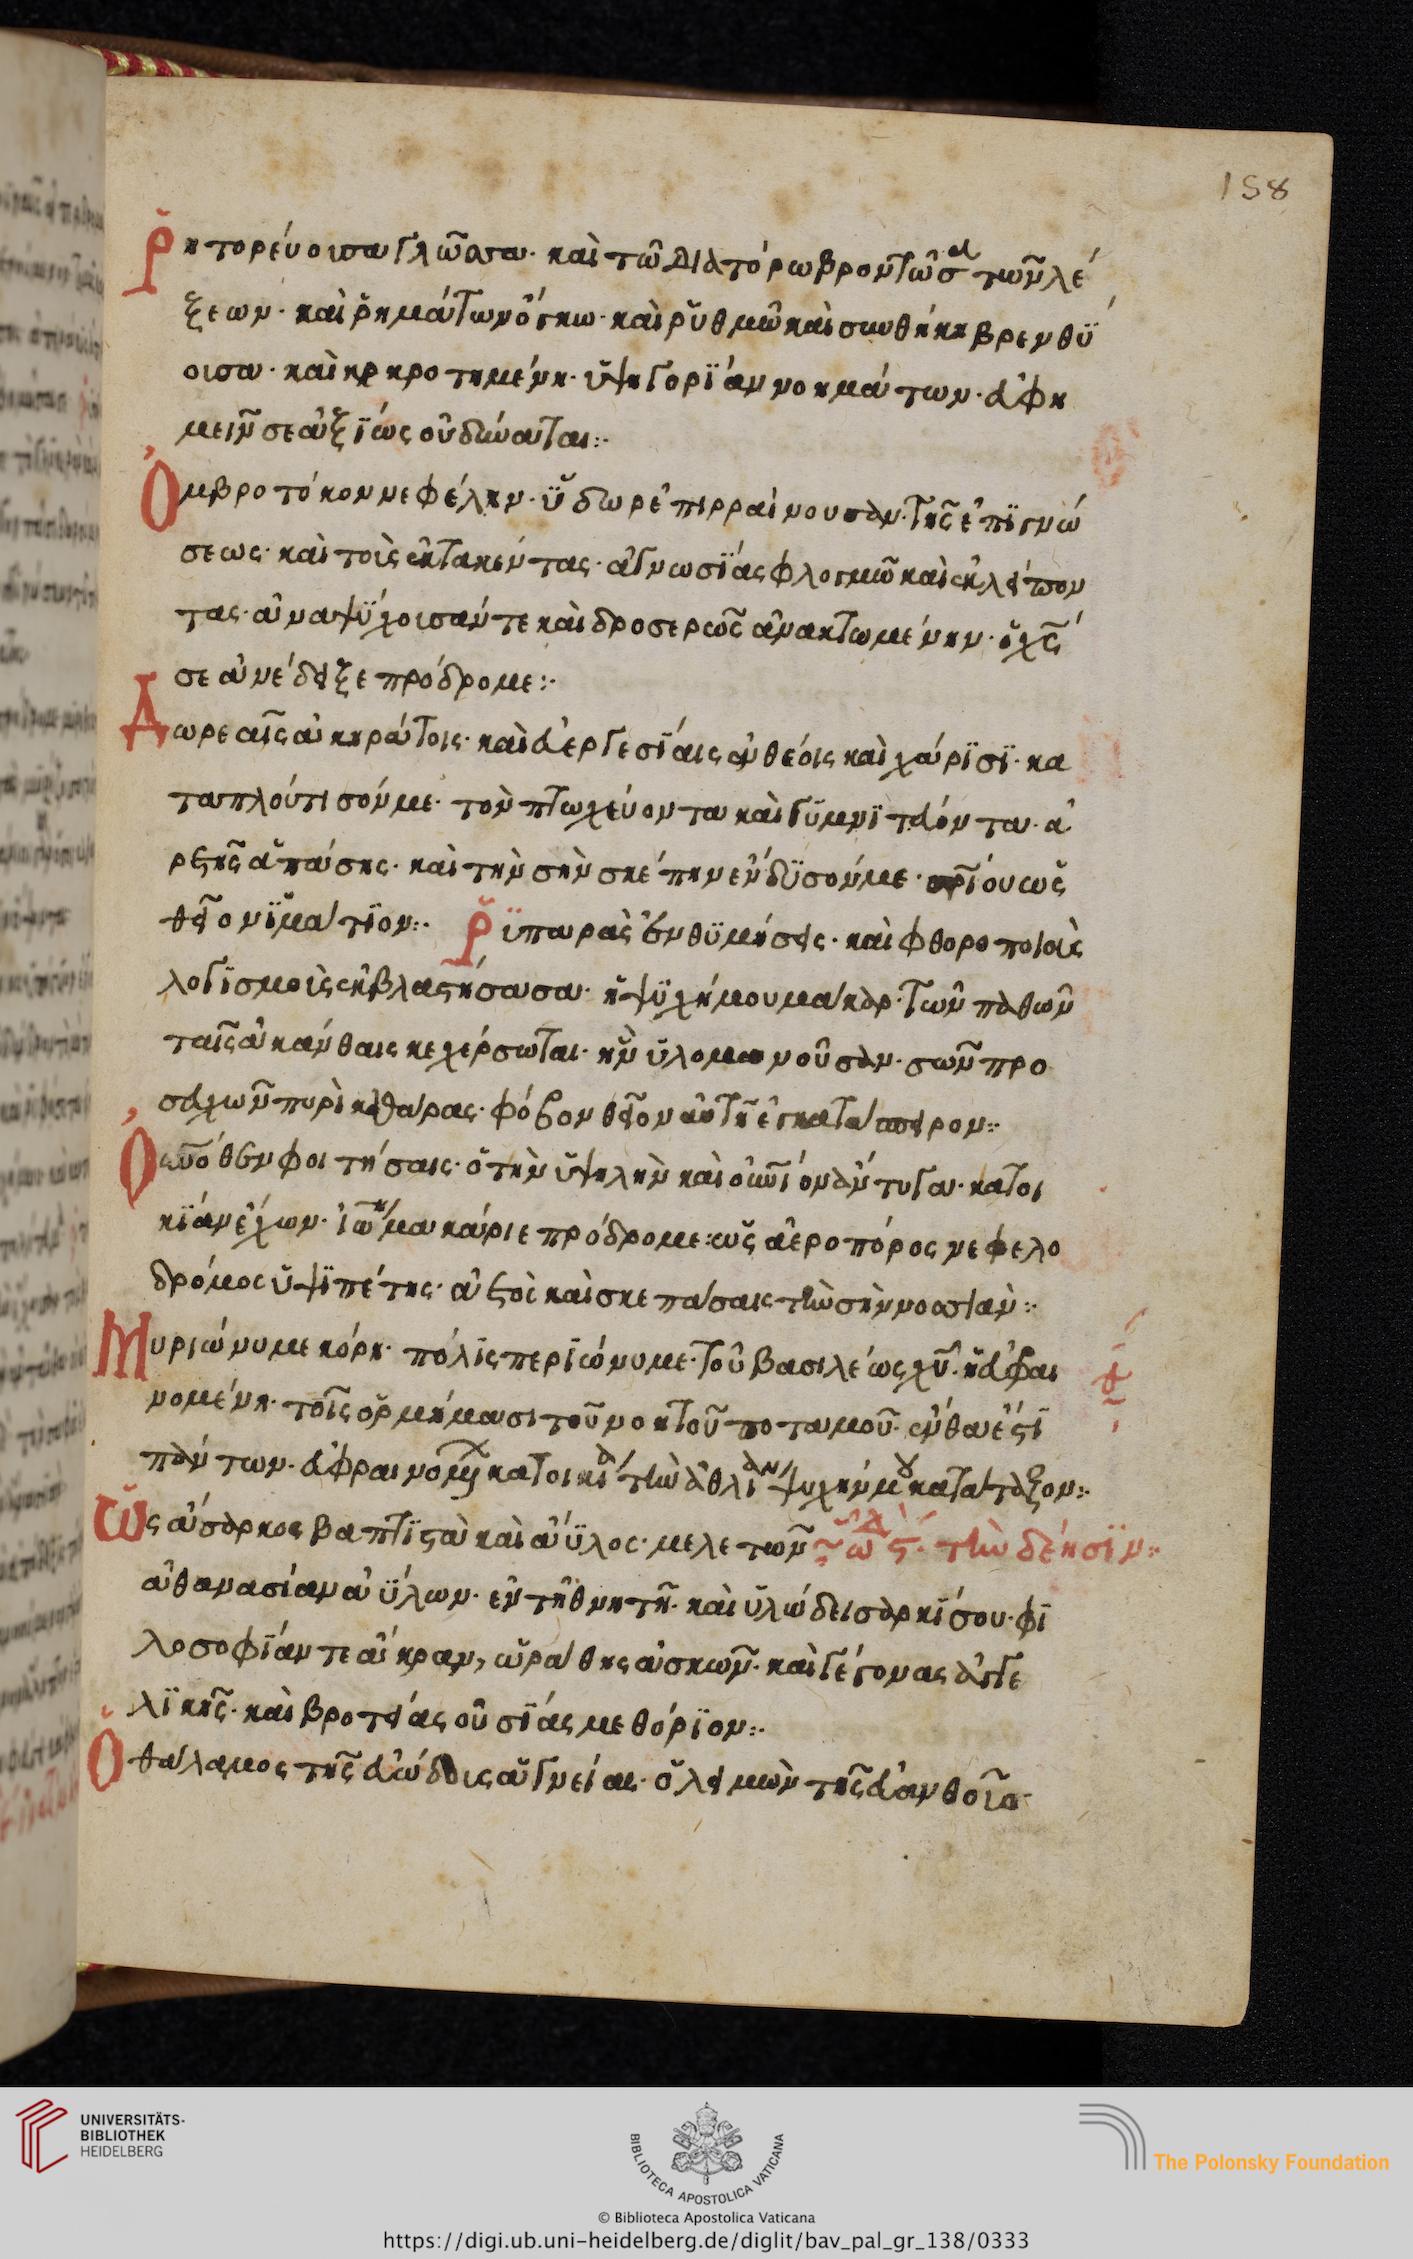 158
Ῥητορεύουσα γλῶσσα· καὶ τῶ διατόρω βροντῶσα τῶν λέ
ξεων· καὶ ῥημάτων ὄγκω· καὶ ῥυθμῶ καὶ συνθήκη βρενθύ
ουσα· καὶ κροτημένη· ὑψηγορίαν νοημάτων· εὐφη
μεῖν σε ἀξίως οὐ δύναται:·
Ὀμβροτόκον νεφέλην· ὕδωρ ἐπιρραίνουσαν· τῆς ἐπιγνώ
σεως· καὶ τοὺς ἐκτακέντας· ἀγνωσίας φλογμῶ καὶ ἐκλείπον
τας· ἀναψύχουσάν τε καὶ δροσερῶς ἀνακτωμένην·
σε ἀνέδειξε πρόδρομε:·
Δωρεαῖς ἀκηράτοις· καὶ εὐεργεσίαις ἐνθέοις καὶ χάρισι· κα
ταπλούτισόν με· τὸν πτωχεύοντα καὶ γυμνιτεύοντα· ἀ
ρετῆς ἁπάσης· καὶ τὴν σὴν σκέπην ἔνδυσόν με· ὡς
θεῖον ἱμάτιον:· Ῥυπαρὰς ἐνθυμήσεις· καὶ φθοροποιοὺς
λογισμοὺς ἐκβλαστήσασα· ἡ ψυχή μου μάκαρ· τῶν παθῶν
ταῖς ἀκάνθαις κεχέρσωται· ἣν ὑλομανοῦσαν· σῶν προ
σευχῶν πυρὶ καθάρας· φόβον θεῖον αὐτῆ ἐγκατάσπειρον:·
Ὁ θεν φοιτήσαις· ὁ τὴν ὑψηλὴν καὶ οὐράνιον ἄντυγα· κατοι
κίαν ἔχων· ἰω μακάριε πρόδρομε: ὡς ἀεροπόρος νεφελο
δρόμος ὑψιπέτης· ἀετὸς καὶ σκεπάσαις τὴν σὴν νοσσιάν:·
Μυριώνυμε κόρη· πόλις περιώνυμε· τοῦ βασιλέως χυ· ἡ εὐφραι
νομένη· τοῖς ὁρμήμασι τοῦ νοητοῦ ποταμοῦ· ἔνθα ἐστὶ
πάντων· εὐφραινομένων κατοικία τὴν ἀθλίαν ψυχήν μου κατάταξον:·
Ὡς ἄσαρκος βαπτιστὰ καὶ ἄυλος· μελετῶν ὠδὴ ς· τὴν δέησιν:·
ἀθανασίαν ἀύλων· ἐν τῆ θνητῆ· καὶ ὑλώδει σαρκί σου· φι
λοσοφίαν τε ἄκραν, ὡράθης ἀσκῶν· καὶ γέγονας ἀγγε
λικῆς· καὶ βροτείας οὐσίας μεθόριον:·
Ὁ θάλαμος τῆς εὐώδους ἁγνείας· ὁ λειμὼν τῆς εὐανθοῦς
UNIVERSITÄTS-
BIBLIOTHEK
HEIDELBERG
BIBLIOTECA APOSTOLICA VATICANA
The Polonsky Foundation
© Biblioteca Apostolica Vaticana
https://digi.ub.uni-heidelberg.de/diglit/bav_pal_gr_138/0333